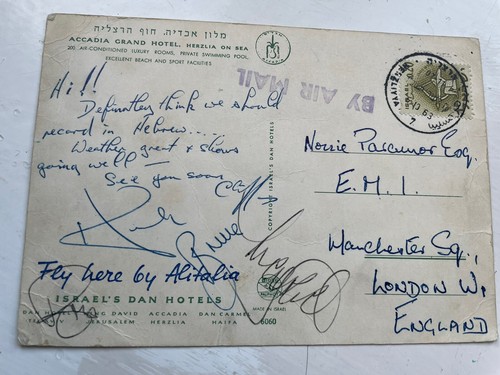 מלון אכדיה, חוף הרצליה
ACCADIA GRAND HOTEL, HERZLIA ON SEA
200 AIR-CONDITIONED LUXURY ROOMS, PRIVATE SWIMMING POOL,
EXCELLENT BEACH AND SPORT FACILITIES
ACCADIA
BY AIR MAIL
Hi!!
Definately think we should
record in Hebrew....
Weather great & shows
going well —
See you soon
Cliff
Bruce
Fly here by Alitalia
ISRAEL'S DAN HOTELS
DAN KING DAVID ACCADIA DAN CARMEL
TEL AVIV JERUSALEM HERZLIA HAIFA
6060
MADE IN ISRAEL
COPYRIGHT ISRAEL'S DAN HOTELS
63
7
Norrie Paramor Esq.
E.M.I.
Manchester Sq.,
LONDON W.
ENGLAND